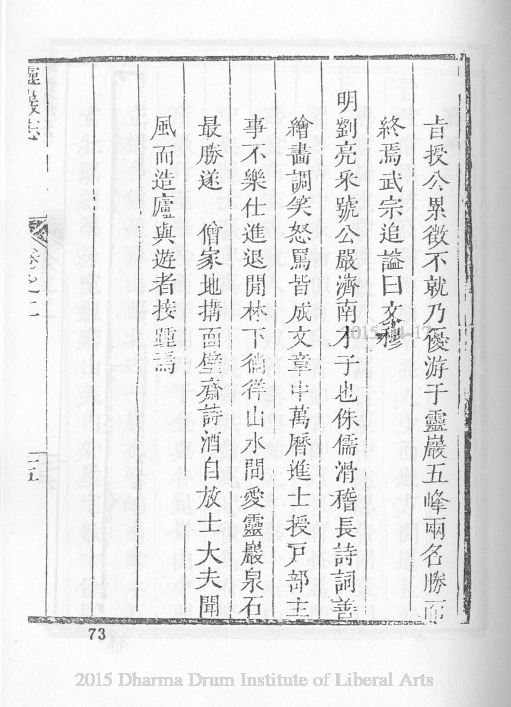 旨授公累徵不就乃優游于靈巖五峰兩名勝而
終焉武宗追諡曰文穆
明劉亮采號公嚴濟南才子也侏儒滑稽長詩詞善
繪畵調笑怒罵皆成文章中萬曆進士授戸部主
事不樂仕進退閒林下徜徉山水間愛靈巖泉石
最勝遂 僧家地搆面壁齋詩酒自放士大夫聞
風而造廬與遊者接踵焉
靈巖志 卷之二 十五
73
2015 Dharma Drum Institute of Liberal Arts